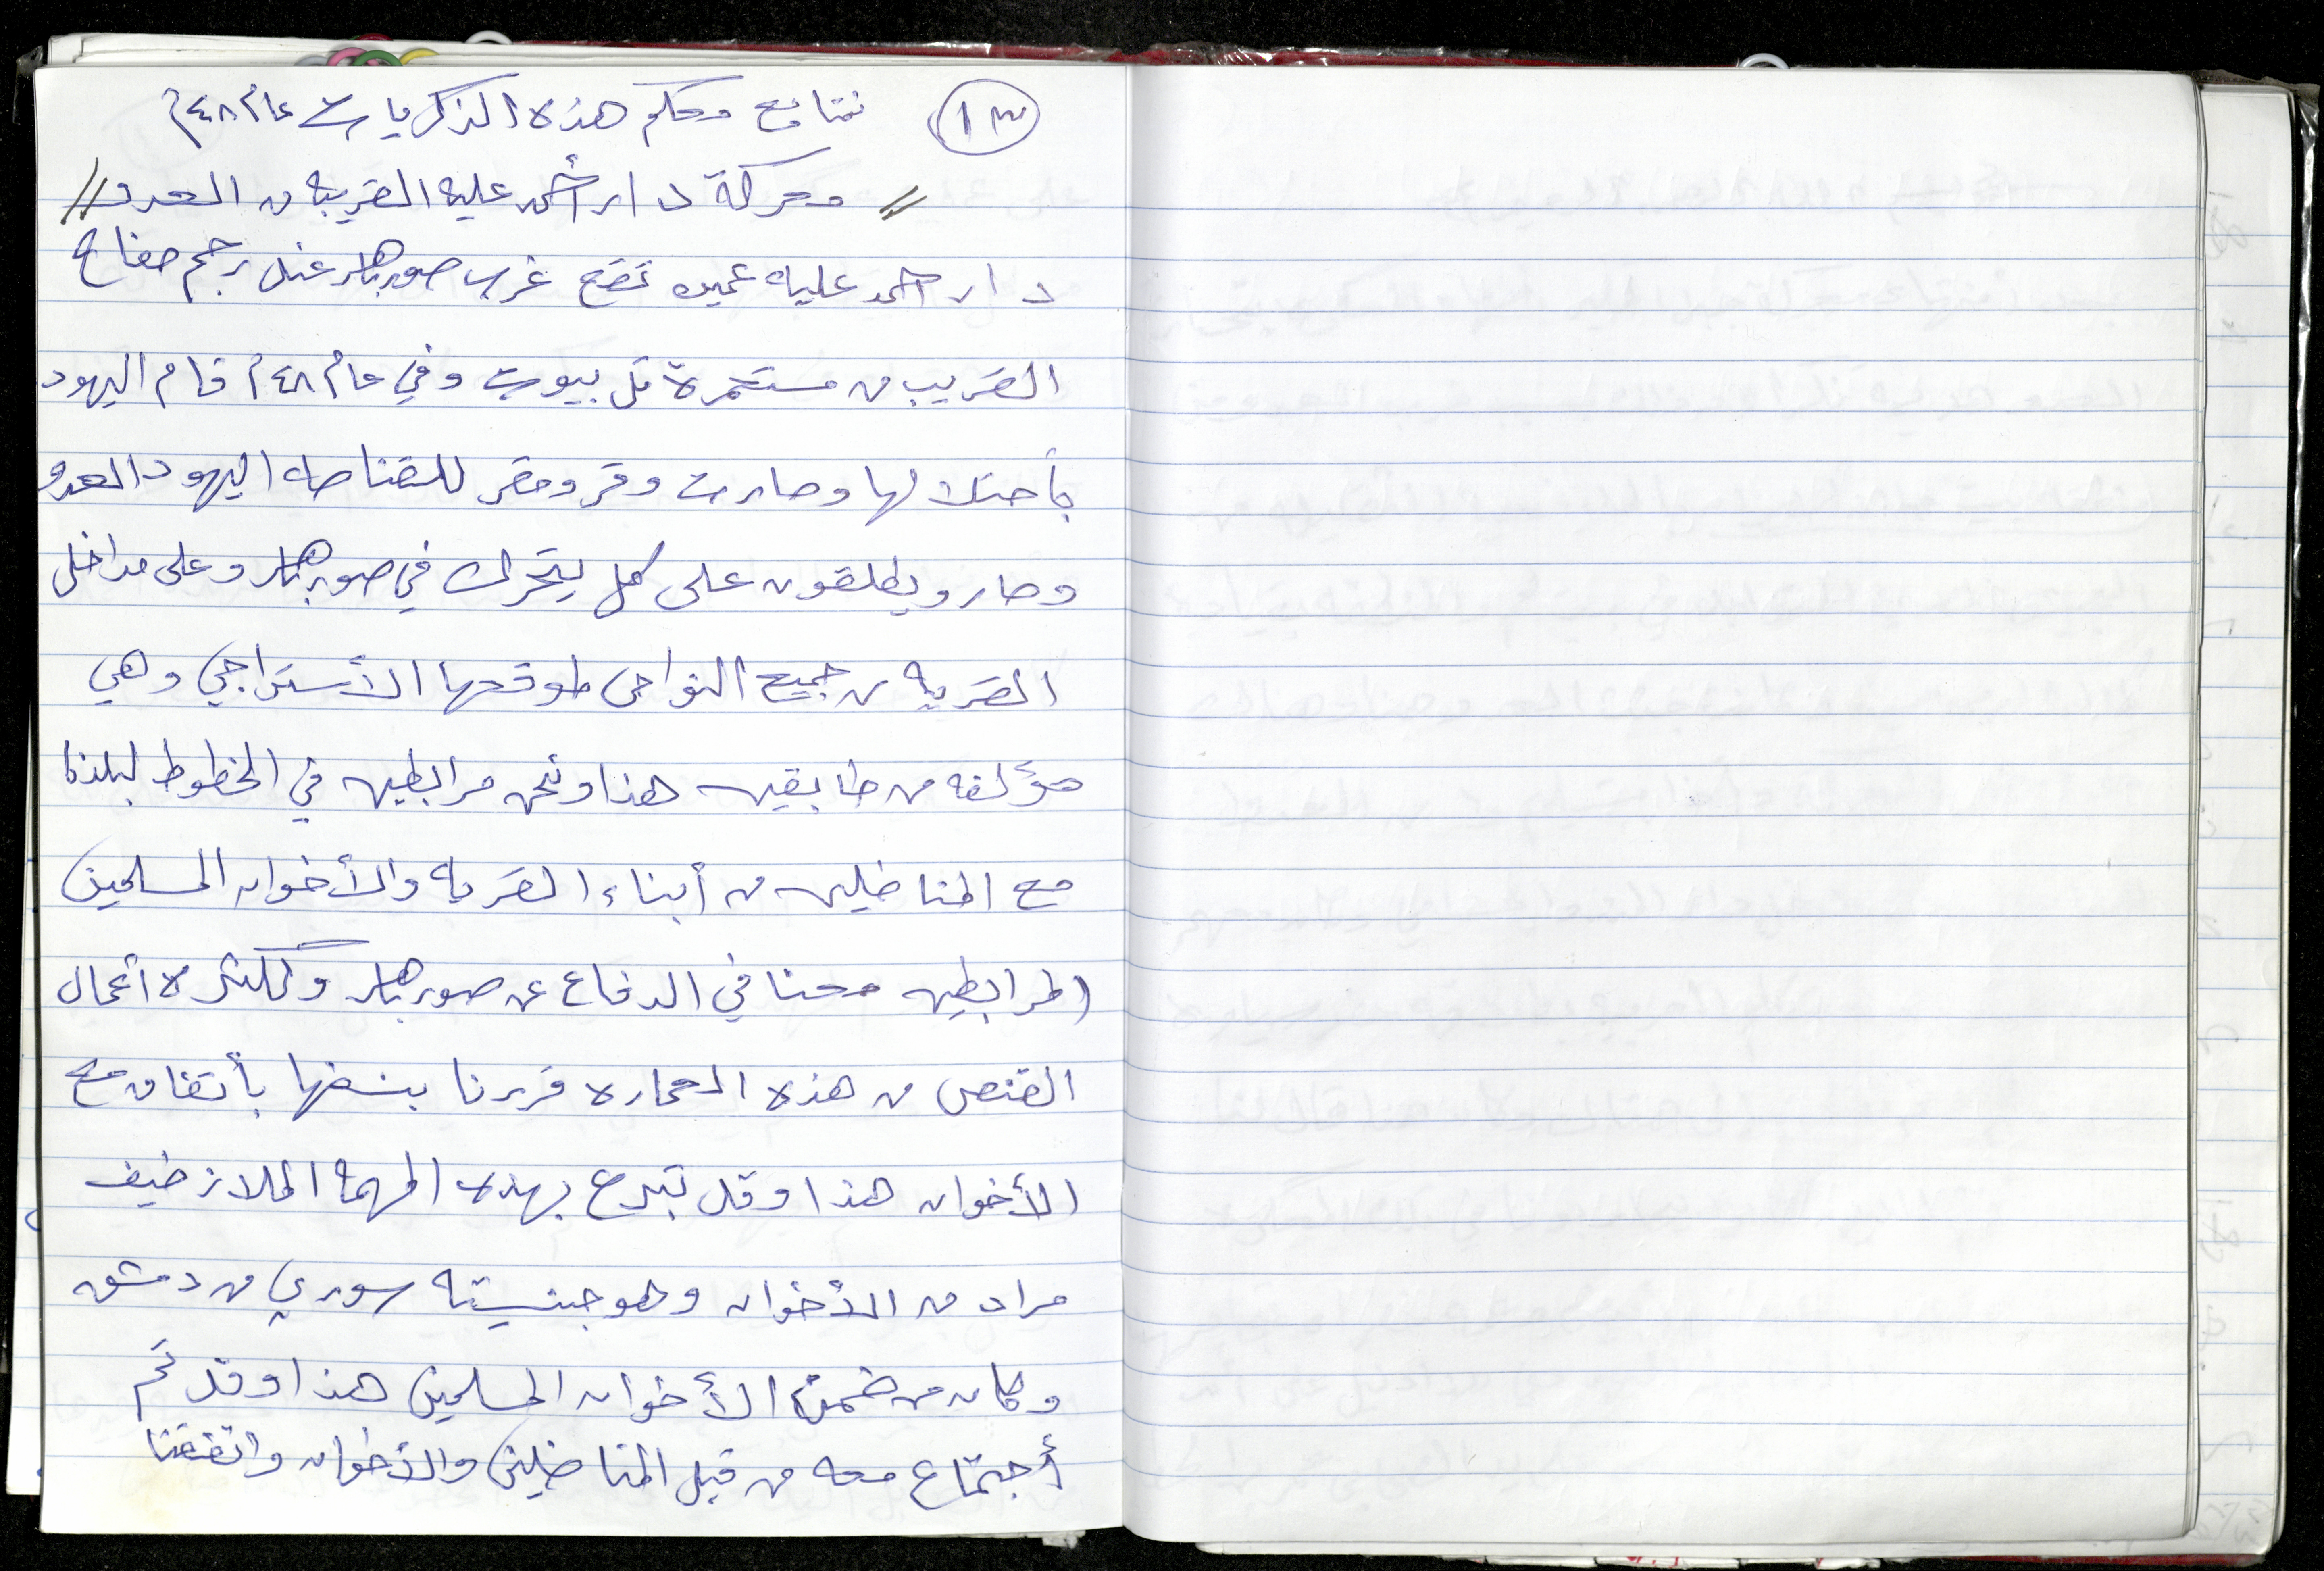 ١٣ نتابع معكم هذه الذكريات عام ٤٨م
// معركة دار أحمد عليه القريبه من العدو //
دار احمد عليه عميره تقع غرب صورباهر عند رجم صفاح
القريب من مستعمرة تل بيوت وفي عام ٤٨م قام اليهود
بأحتلالها وصارت وقر ومقر للقناصه اليهود العدو
وصارو يطلقون على كل يتحرك في صورباهر وعلى مداخل
القريه من جميع النواحي لموقعها الأستراجي وهي
مؤلفه من طابقين هذا ونحن مرابطين في الخطوط لبلدنا
مع المناضلين من أبناء القريه والأخوان المسلمين
المرابطين معنا في الدفاع عن صورباهر ولكثرة أعمال
القنص من هذه العماره قررنا بنسفها بأتفاق مع
الأخوان هذا وقد تبرع بهده المهمه الملاز ضيف
مراد من الأخوان وهو جنسيته سوري من دمشق
وكان من ضمن الأخوان المسلمين هذا وقد تم
أجتماع معه من قبل المناضلين والأخوان واتفقنا